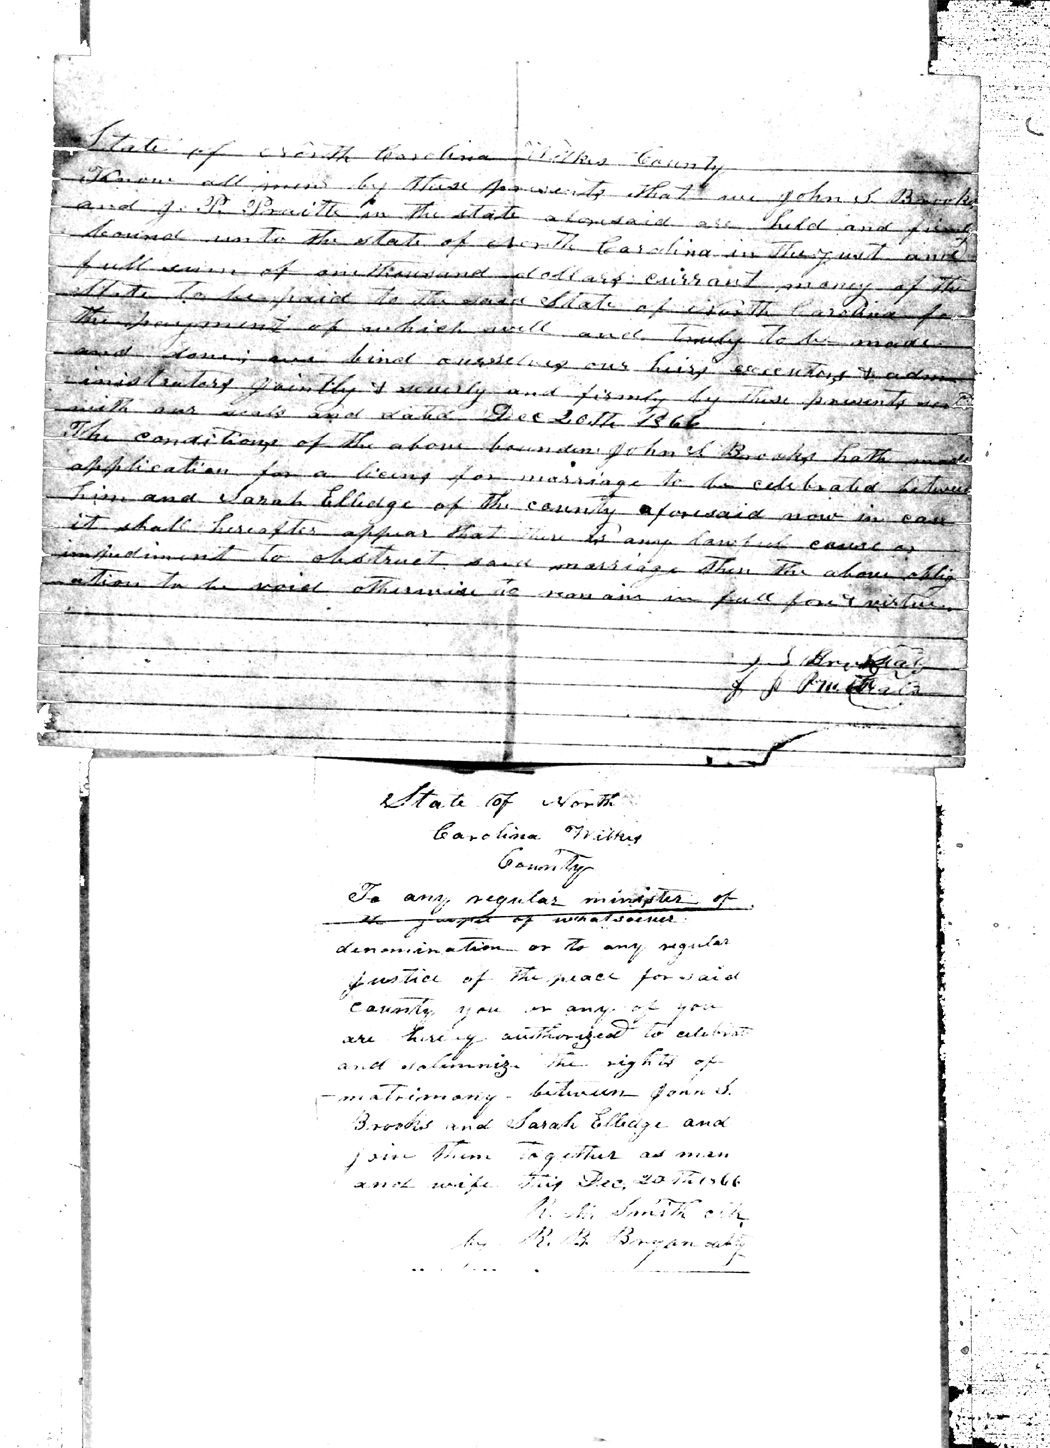 State of North Carolina Wilkes County
Know all men by these presents that we John S Brooks
and J. P. Pruitte in the state aforesaid are held and firmly
bound unto the state of North Carolina in the just and
full sum of onethousand dollars currant money of the
State to be paid to the said State of North Carolina fo
the payment of which well and truly to be made
and done; we bind ourselves our heirs executors & adm
inistrators jointly & severly and firmly by these presents
with our seals and dated Dec 20th 1866
The conditions of the above bounden John S Brooks hath made
application for a licens for marriage to be celebrated between
him and Sarah Elledge of the county aforesaid now in case
it shall hereafter appear that there is any lawful cause or
impediment to obstruct said marriage then the above oblig
ation to be void otherwise to remain in full force & virtue.
J S Brooks seal
J P Pruitt seal
State of North
Carolina Wilkes
County
To any regular minister of
gospel of whatsoever
denomination or to any regular
justice of the peace for said
county you or any of you
are hereby authorized to celebrate
and solemnize the rights of
matrimony between John S.
Brooks and Sarah Elledge and
join them together as man
and wife this Dec. 20th 1866
Smith clk
by R. B. Bryan dpty